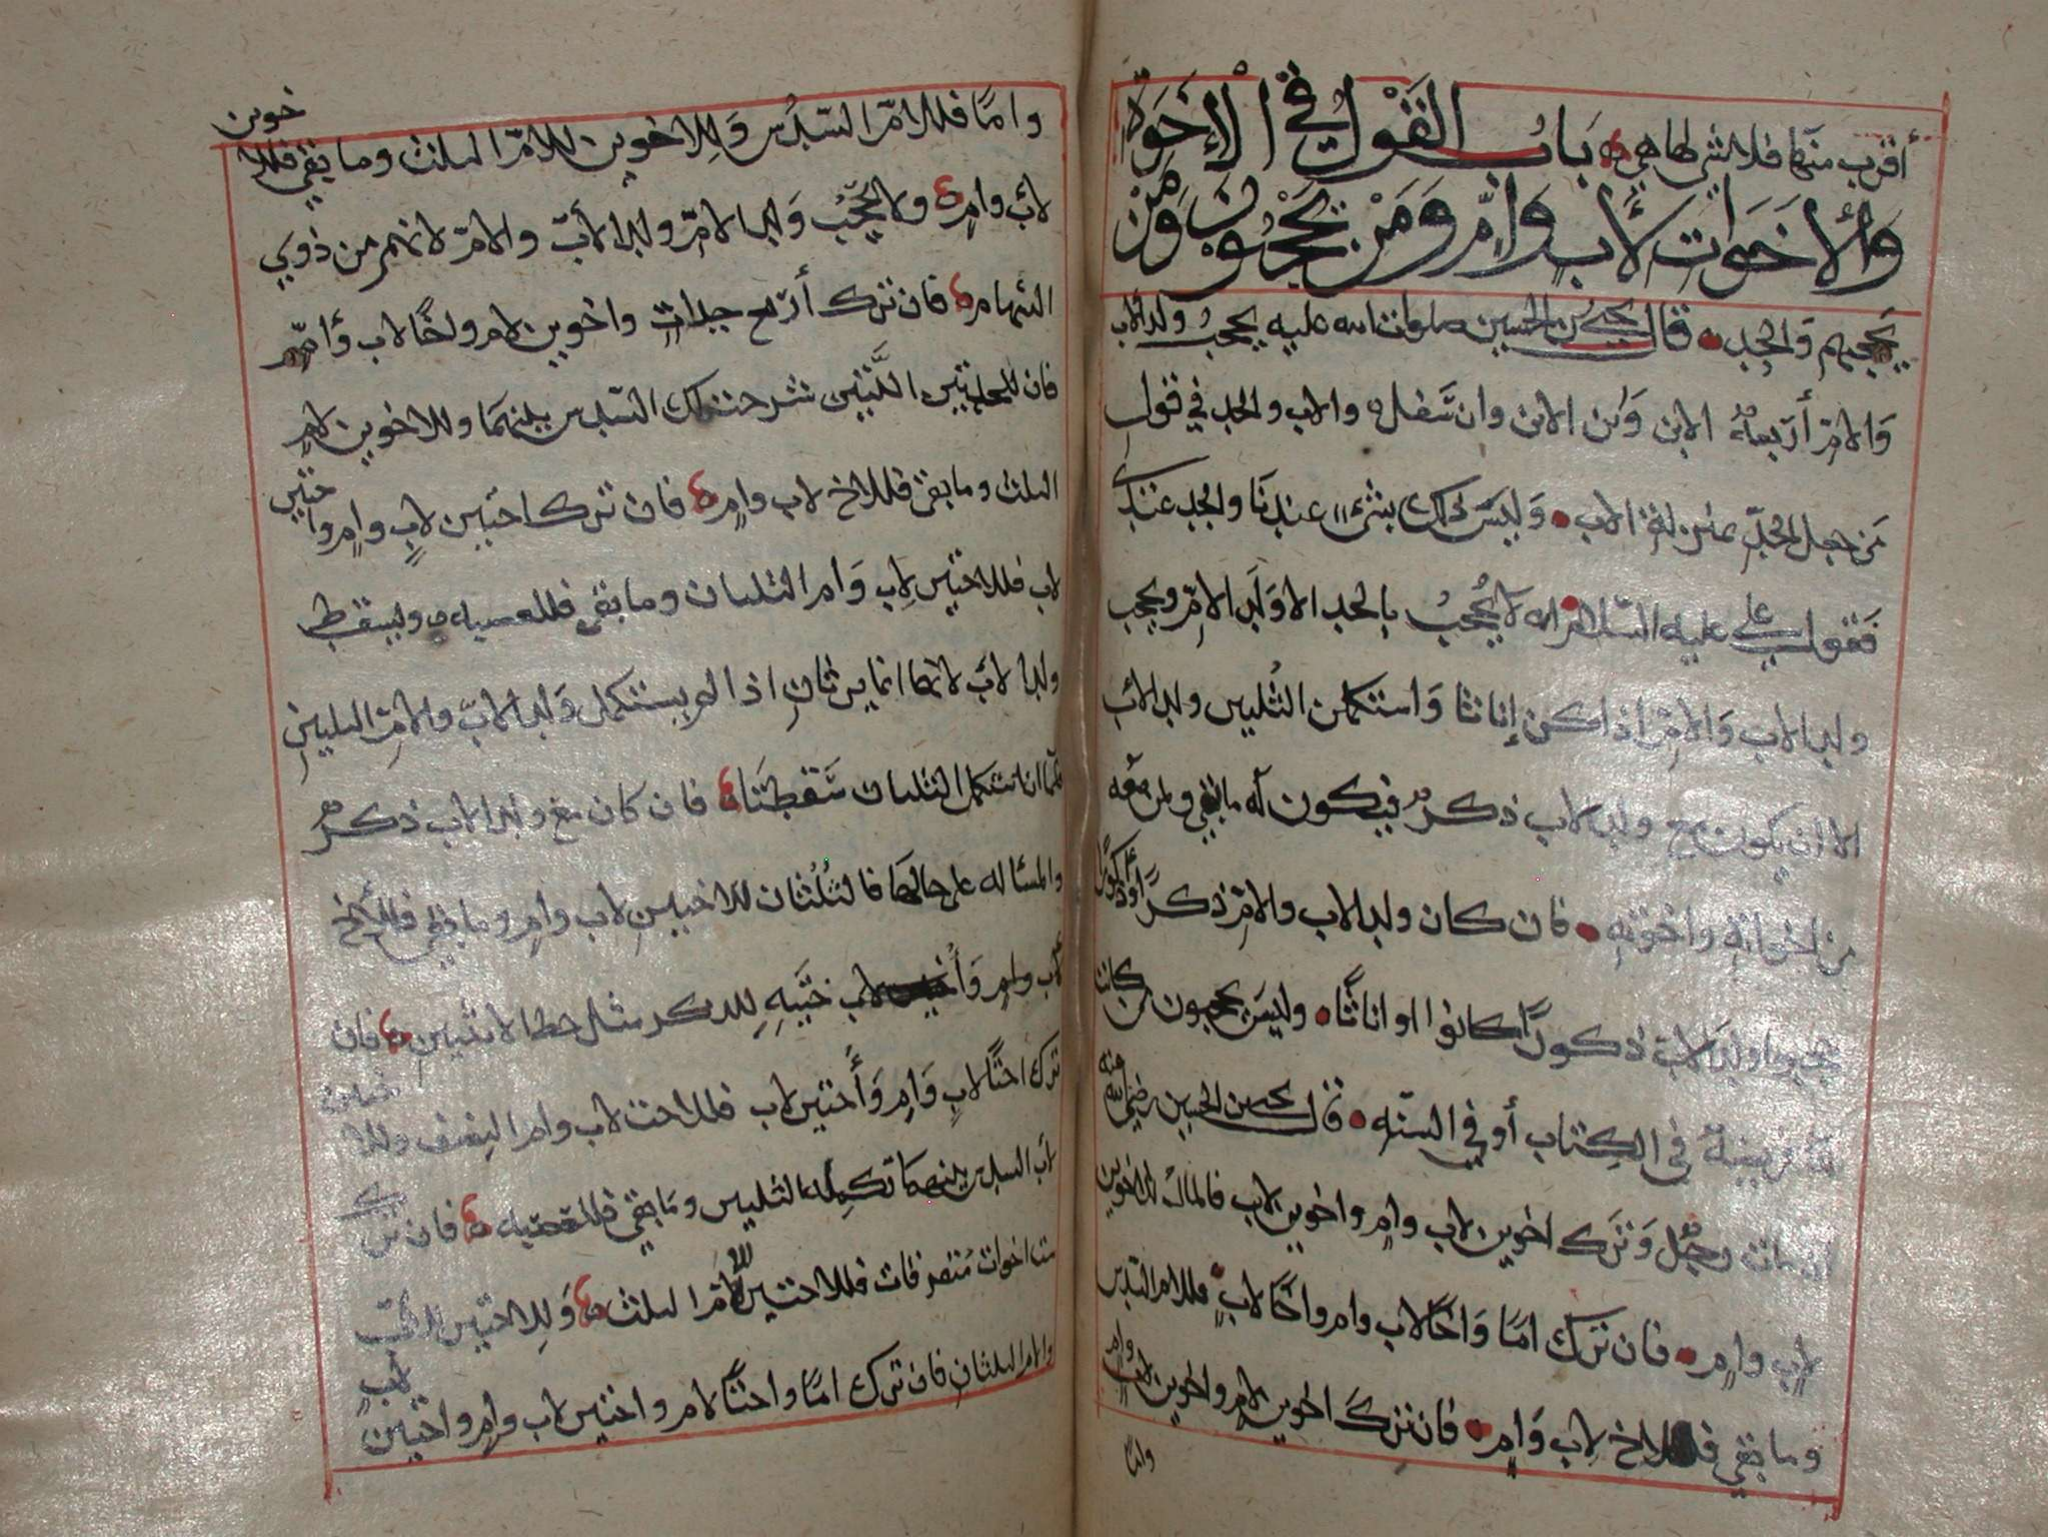 أقرب منها فلا شي لها هي باب القول في الإخوة
والأخوات لأب وأم ومن يحجبون ومن
يحجبهم والجد قال يحيى بن الحسين صلوات الله عليه يحجب ولد الاب
والام أربعة الابن وابن الابن وان سفل والاب والجد في قول
من جعل الجد بمنزلة الاب وليس ذلك بشيء عندنا والجد عندي
فقول علي عليه السلم انه لا يحجب بالجد الا ولد الام ويحجب
ولد الاب والام اذا كن إناثا واستكملن الثلثين ولد الاب
الا ان يكون مع ولد الاب ذكر فيكون له ما بقي ولمن معه
من اخواته واخوته فان كان ولد الاب والام ذكرا أو ذكورا
حجبوا ولد الاب ذكورا كانوا او اناثا وليس يحجبون من كانت
له فريضة في الكتاب أو في السنه قال يحيى بن الحسين رضي الله عنه
ان مات رجل وترك اخوين لاب وام واخوين لاب فالمال للاخوين
لاب وام فان ترك اما واخا لاب وام واخا لاب فللام السدس
وما بقي فللاخ لاب وام فان ترك اخوين لام واخوين لاب وام
واما
واما فللام السدس وللاخوين للام الثلث وما بقي فللاخوين
لاب وام ولا يحجب ولد الام ولد الأب والام لانهم من ذوي
السهام فان ترك أربع جدات واخوين لام واخا لاب وأم
فان للجدتين اللتين السدس بينهما وللاخوين لام
الثلث وما بقي فللاخ لاب وام فان ترك اختين لاب وام واختين
لاب فللاختين لاب وام الثلثان وما بقي فللعصبه ويسقط
ولد الاب لانهما انما يرثان اذا لم يستكمل ولد الاب والام الثلثين
فلما ان استكمل الثلثان سقطتا فان كان مع ولد الاب ذكر
والمسئاله على حالها فالثلثان للاختين لاب وام وما بقي فللأخ
لاب وام لاب للذكر مثل حظ الانثيين فان
ترك اختا لاب وام وأختين لاب فللاخت لاب وام النصف وللاختين
لاب السدس بينهما تكملة الثلثين وما بقي فللعصبه فان ترك
ست اخوات متفرقات فللاختين للام الثلث وللاختين للأب
والام الثلثان فان ترك اما واختا لام واختين لاب وام واختين لاب